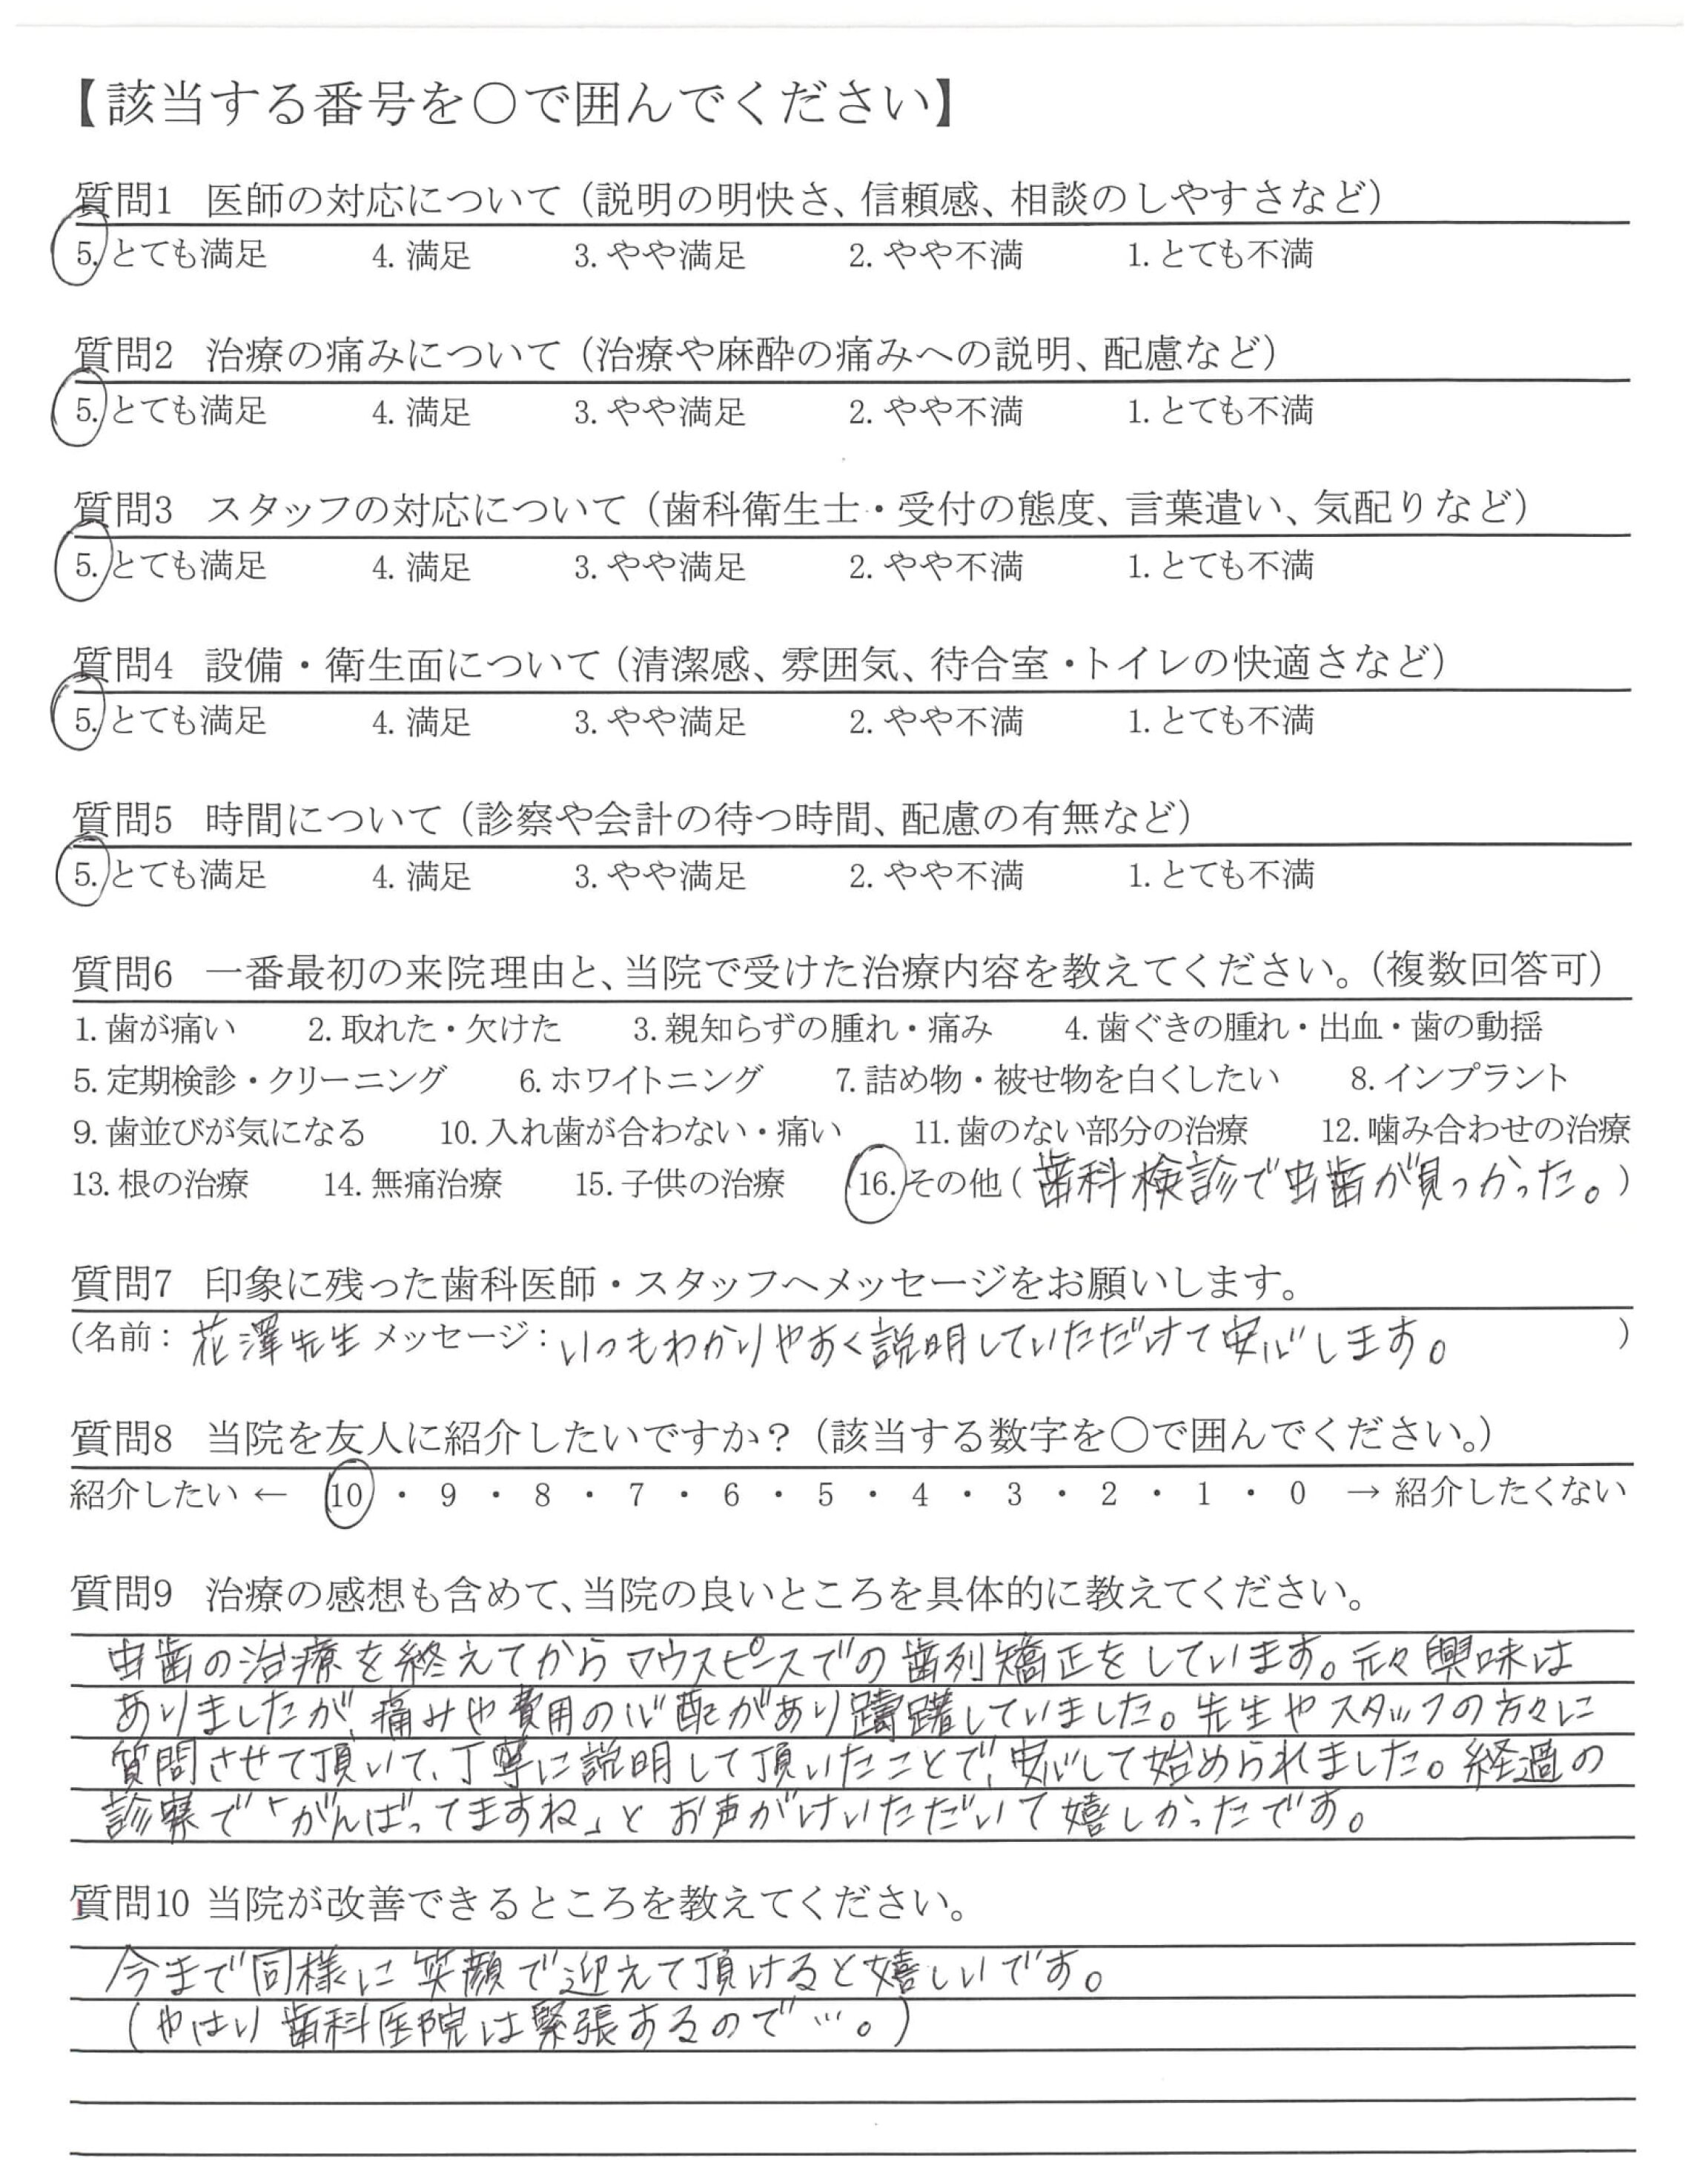 【該当する番号を○で囲んでください】
質問1 医師の対応について（説明の明快さ、信頼感、相談のしやすさなど）
5. とても満足 4. 満足 3. やや満足 2. やや不満 1. とても不満
質問2 治療の痛みについて（治療や麻酔の痛みへの説明、配慮など）
5. とても満足 4. 満足 3. やや満足 2. やや不満 1. とても不満
質問3 スタッフの対応について（歯科衛生士・受付の態度、言葉遣い、気配りなど）
5. とても満足 4. 満足 3. やや満足 2. やや不満 1. とても不満
質問4 設備・衛生面について（清潔感、雰囲気、待合室・トイレの快適さなど）
5. とても満足 4. 満足 3. やや満足 2. やや不満 1. とても不満
質問5 時間について（診察や会計の待つ時間、配慮の有無など）
5. とても満足 4. 満足 3. やや満足 2. やや不満 1. とても不満
質問6 一番最初の来院理由と、当院で受けた治療内容を教えてください。（複数回答可）
1. 歯が痛い 2. 取れた・欠けた 3. 親知らずの腫れ・痛み 4. 歯ぐきの腫れ・出血・歯の動揺
5. 定期検診・クリーニング 6. ホワイトニング 7. 詰め物・被せ物を白くしたい 8. インプラント
9. 歯並びが気になる 10. 入れ歯が合わない・痛い 11. 歯のない部分の治療 12. 噛み合わせの治療
13. 根の治療 14. 無痛治療 15. 子供の治療 16. その他（歯科検診で虫歯が見つかった。）
質問7 印象に残った歯科医師・スタッフへメッセージをお願いします。
（名前：花澤先生 メッセージ：いつもわかりやすく説明していただけて安心します。）
質問8 当院を友人に紹介したいですか？（該当する数字を○で囲んでください。）
紹介したい ← 10 ・ 9 ・ 8 ・ 7 ・ 6 ・ 5 ・ 4 ・ 3 ・ 2 ・ 1 ・ 0 → 紹介したくない
質問9 治療の感想も含めて、当院の良いところを具体的に教えてください。
虫歯の治療を終えてからマウスピースでの歯列矯正をしています。元々興味は
ありましたが、痛みや費用の心配があり躊躇していました。先生やスタッフの方々に
質問させて頂いて、丁寧に説明して頂いたことで、安心して始められました。経過の
診察で「がんばってますね」とお声がけいただいて嬉しかったです。
質問10 当院が改善できるところを教えてください。
今まで同様に笑顔で迎えて頂けると嬉しいです。
（やはり歯科医院は緊張するので…。）